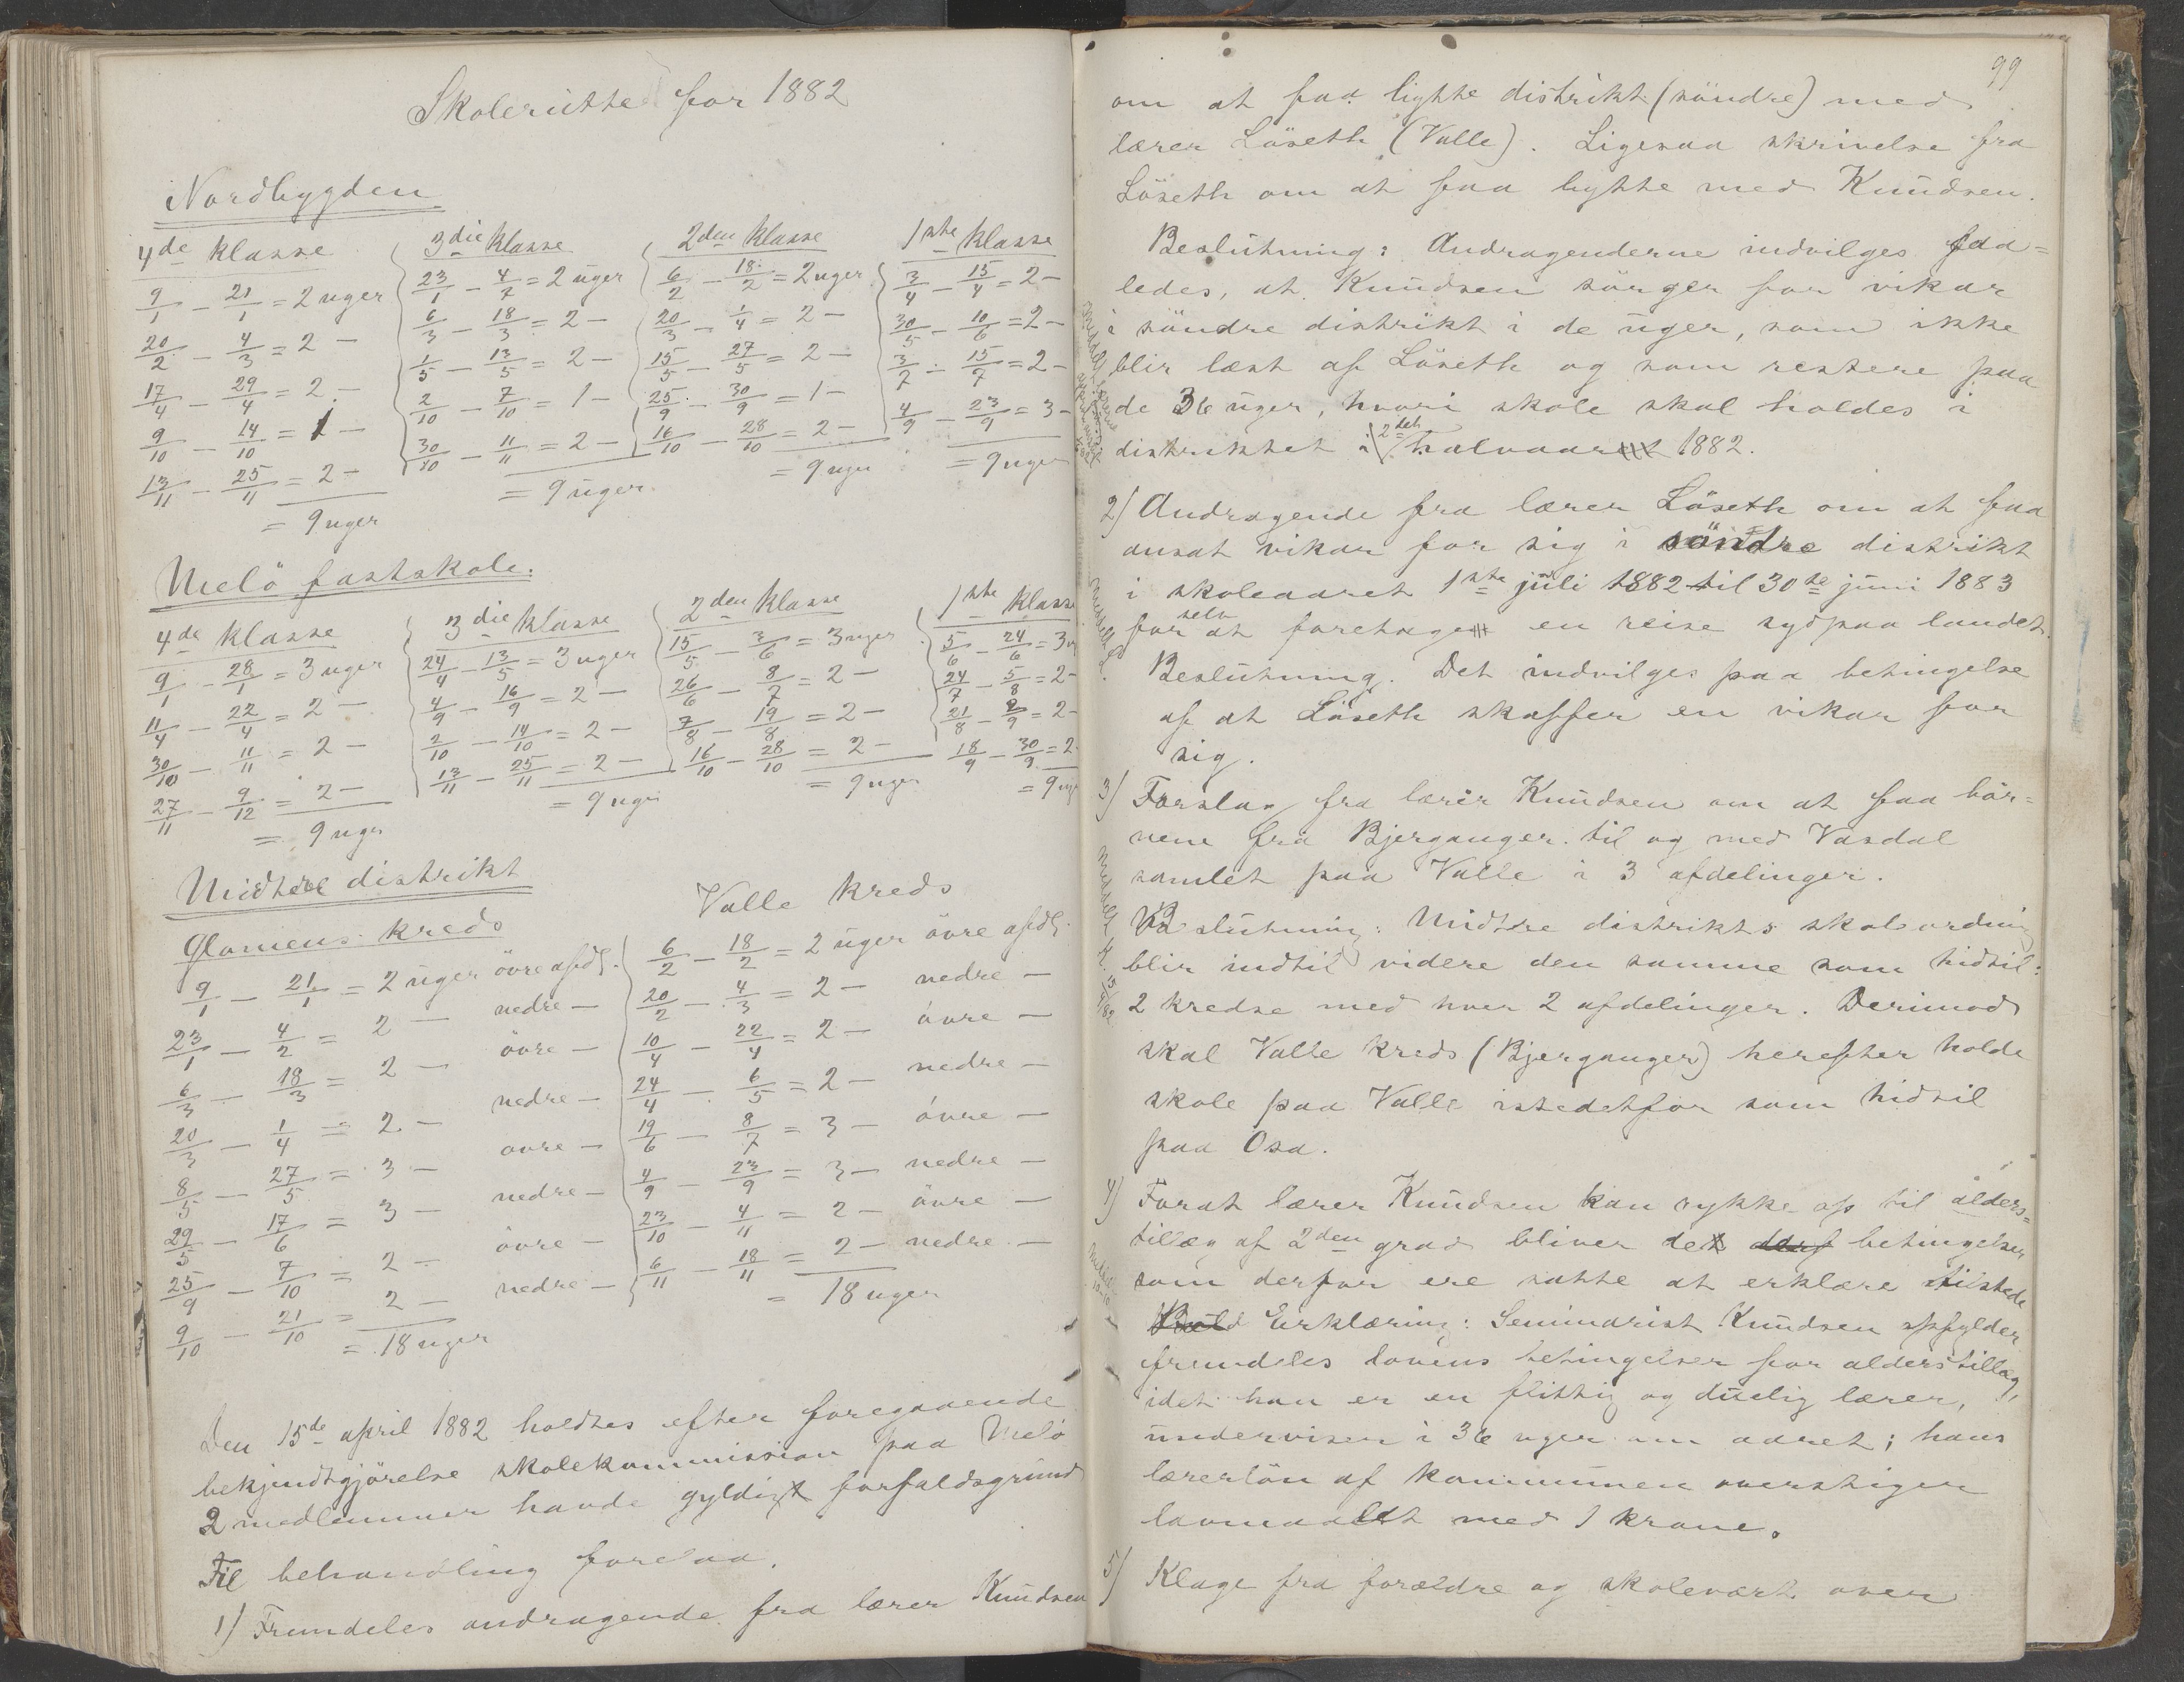 Skolerutte for 1882
Nordbygden
4de klasse
9/1 - 21/1 = 2 uger
20/2 - 4/3 = 2 -
17/4 - 29/4 = 2 -
9/10 - 14/10 = 1 -
13/11 - 25/11 = 2 -
= 9 uger
3die klasse
23/1 - 4/2 = 2 uger
6/3 - 18/3 = 2 -
1/5 - 13/5 = 2 -
2/10 - 7/10 = 1 -
30/10 - 11/11 = 2 -
= 9 uger
2den klasse
6/2 - 18/2 = 2 uger
20/3 - 1/4 = 2 -
15/5 - 27/5 = 2 -
25/9 - 30/9 = 1 -
16/10 - 28/10 = 2 -
= 9 uger
1ste klasse
3/4 - 15/4 = 2 -
30/5 - 10/6 = 2 -
3/7 - 15/7 = 2 -
4/9 - 23/9 = 3 -
= 9 uger
Melö fastskole.
4de klasse
9/1 - 28/1 = 3 uger
11/4 - 22/4 = 2 -
30/10 - 11/11 = 2 -
27/11 - 9/12 = 2 -
= 9 uger
3die klasse
24/4 - 13/5 = 3 uger
4/9 - 16/9 = 2 -
2/10 - 14/10 = 2 -
13/11 - 25/11 = 2 -
= 9 uger
2den klasse
15/5 - 3/6 = 3 uger
26/6 - 8/7 = 2 -
7/8 - 19/8 = 2 -
16/10 - 28/10 = 2 -
= 9 uger
1ste klasse
5/6 - 24/6 = 3 u
24/7 - 5/8 = 2 -
21/8 - 2/9 = 2 -
18/9 - 30/9 = 2
= 9 uge
Midtre distrikt
Glomens kreds
9/1 - 21/1 = 2 uger övre afdl.
23/1 - 4/2 = 2 - nedre -
6/3 - 18/3 = 2 - övre -
20/3 - 1/4 = 2 - nedre -
8/5 - 27/5 = 3 - övre -
29/5 - 17/6 = 3 - nedre -
25/9 - 7/10 = 2 - övre -
9/10 - 21/10 = 2 - nedre -
= 18 uger
Valle kreds
6/2 - 18/2 = 2 uger övre afdl.
20/2 - 4/3 = 2 - nedre -
10/4 - 22/4 = 2 - övre -
24/4 - 6/5 = 2 - nedre -
19/6 - 8/7 = 3 - övre -
4/9 - 23/9 = 3 - nedre -
23/10 - 4/11 = 2 - övre -
6/11 - 18/11 = 2 - nedre -
= 18 uger
Den 15de april 1882 holdtes efter foregaaende
bekjendtgjörelse skolekommission paa Melö
2 medlemmer havde gyldigt forfaldsgrund
Til behandling forelaa.
1) Fremdeles andragende fra lærer Knudsen
99
om at faa bytte distrikt (söndre) med
lærer Löseth (Valle). Ligesaa skrivelse fra
Löseth om at faa bytte med Knudsen.
Beslutning: Andragenderne indvilges saa=
ledes, at Knudsen sörger for vikar
i söndre distrikt i de uger, som ikke
blir læst af Löseth og som restere paa
de 36 uger, hvori skole skal holdes i
distriktet i 2det halvaar 1882.
2) Andragende fra lærer Löseth om at faa
ansat vikar for sig i söndre distrikt
i skoleaaret 1ste juli 1882 til 30te juni 1883
for selv at foretage en reise sydpaa landet.
Beslutning. Det indvilges paa betingelse
af at Löseth skaffer en vikar for
sig.
3) Forslag fra lærer Knudsen om at faa bör=
nene fra Bjerganger til og med Vasdal
samlet paa Valle i 3 afdelinger.
Beslutning: Midtre distrikts skoleordning
blir indtil videre den samme som hidtil:
2 kredse med hver 2 afdelinger. Derimod
skal Valle kreds (Bjerganger) herefter holde
skole paa Valle istedetfor som hidtil
paa Osa.
meddelt K. 5/9/82
4) Forat lærer Knudsen kan rykke op til alders=
tillæg af 2den grad bliver det betingelser
som derfor ere satte at erklære tilstede
Erklæring: Seminarist Knudsen opfylder
fremdeles lovens betingelser for alderstillæg,
idet han er en flittig og duelig lærer,
underviser i 36 uger om aaret; hans
lærerlön af kommunen overstiger
lovmaalet med 1 krone.
5) Klage fra forældre og skolevært over